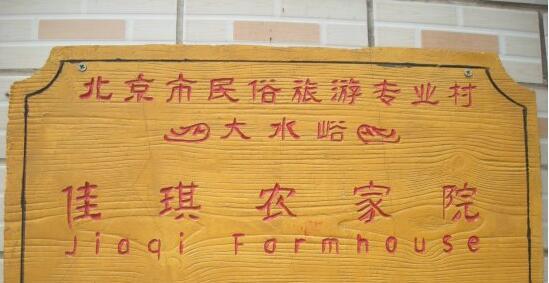 北京市民俗旅游专业村
大水峪
佳琪农家院
Jiaqi Farmhouse